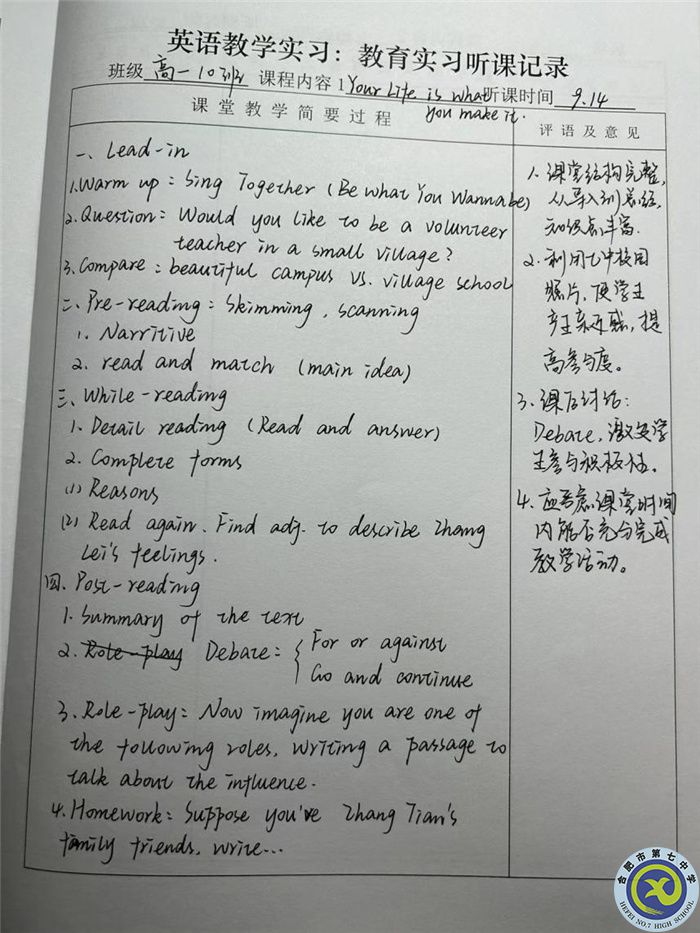 英语教学实习：教育实习听课记录
班级 高一10班 课程内容1 Your Life is what you make it. 听课时间 9.14
课堂教学简要过程
一、Lead-in
1.Warm up：Sing Together (Be what You Wannabe)
2.Question：Would you like to be a volunteer
teacher in a small village?
3.Compare：beautiful campus vs. village school
二、Pre-reading：Skimming，scanning
1. Narritive
2. read and match (main idea)
三、While-reading
1. Detail reading (Read and answer)
2. Complete forms
(1) Reasons
(2) Read again. Find adj. to describe Zhang
Lei's feelings.
四、Post-reading
1. Summary of the text
2. Role-play Debate：{ For or against
Go and continue
3. Role-play：Now imagine you are one of
the following roles, writing a passage to
talk about the influence.
4. Homework：Suppose you're Zhang Tian's
family friends, write...
评语及意见
1. 课堂结构完整，
从导入到总结，
知识点丰富.
2. 利用七中校园
照片，使学生
产生亲近感，提
高参与度。
3、课后讨论：
Debate，激发学
生参与积极性。
4、应考虑课堂时间
内能否充分完成
教学活动。
合肥市第七中学
HEFEI NO.7 HIGH SCHOOL